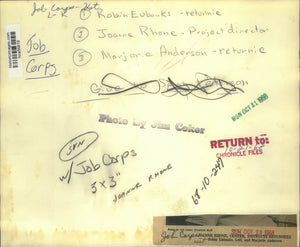 Job Corps
L-R
① Robin Eubanks - returnie
② Joanne Rhone - Project director
③ Marjorie Anderson - returnie
Job
Corps
Give to
SUN OCT 21 1968
Photo By Jim Coker
RETURN to:
CHRONICLE FILES
3PN
w/ Job Corps
3 x 3"
JOANNE RHONE
68-10-249
Job Corps
Robin Eubanks, Left, and Marjorie Anderson